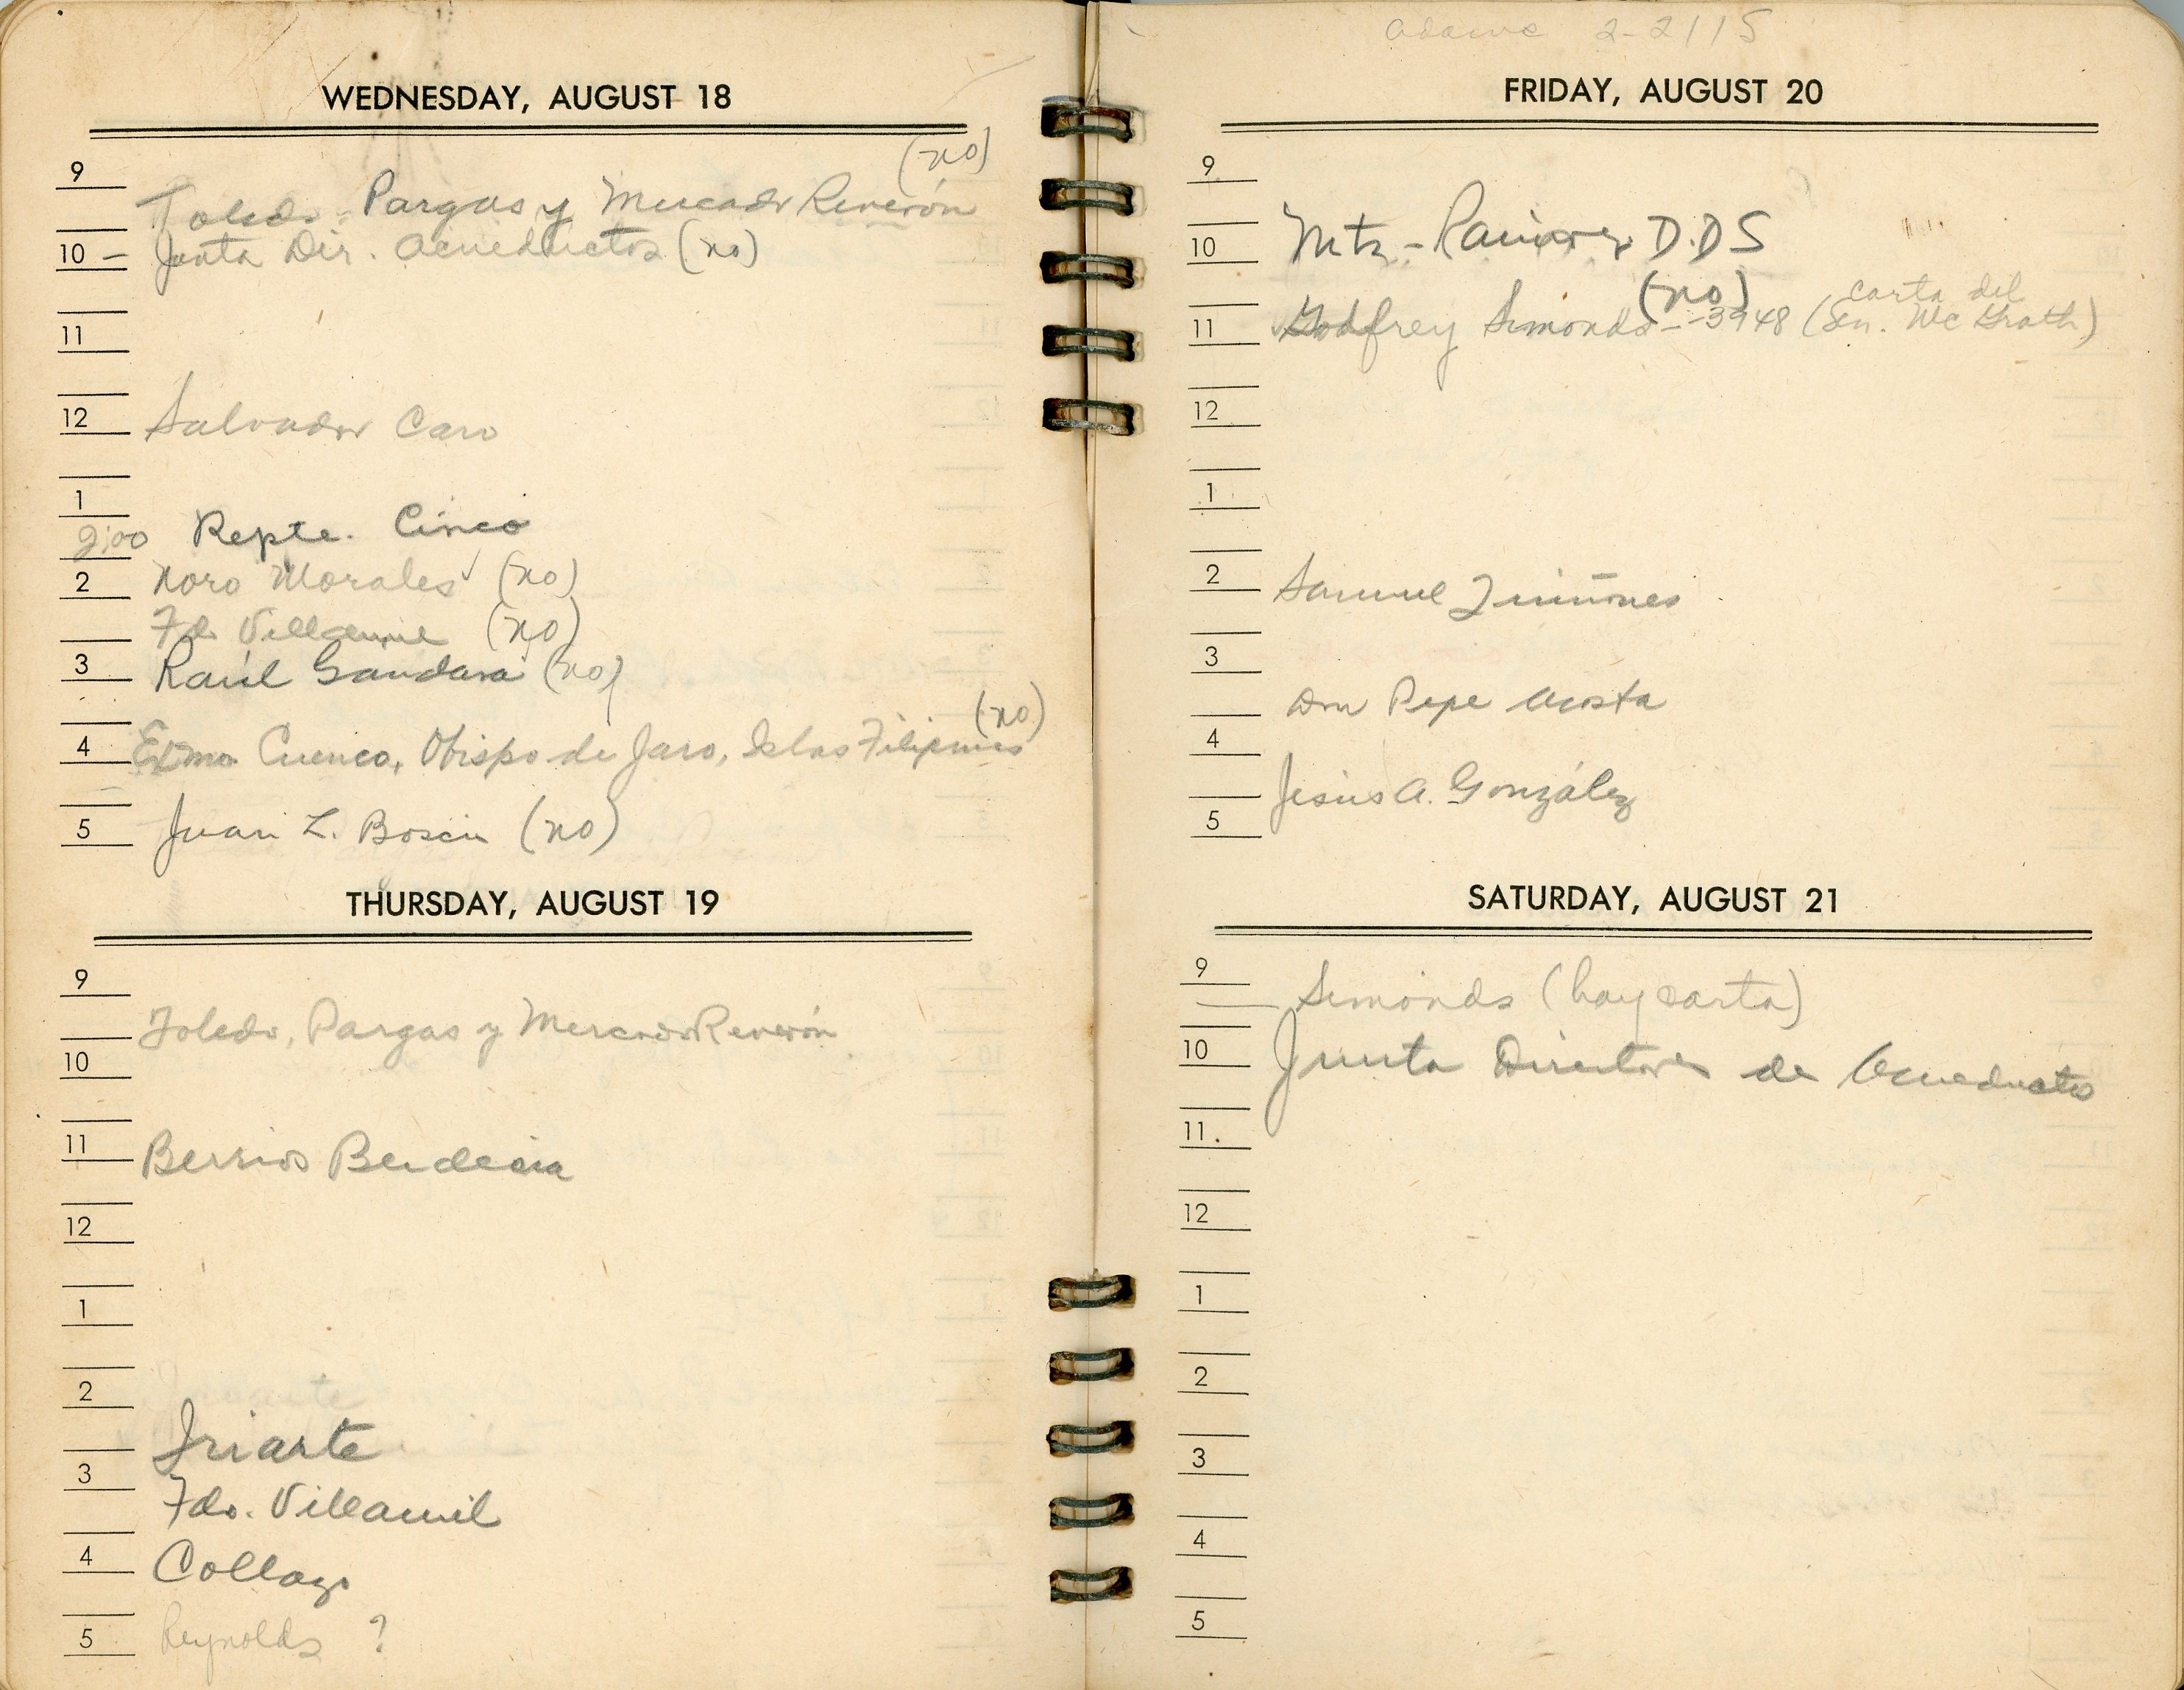 WEDNESDAY, AUGUST 18
(no)
9
Toledo - Pargas y Mercador Reverón
10 - Junta Dir. Acueductos (no)
11
12 Salvador Caro
1
2:00 Repte. Cinco
2 Noro Morales (no)
Fdo Villamil (no)
3 Raúl Gandara (no)
(no)
4 Exmo Cuenco, Obispo de Jaro, Islas Filipinas
5 Juan L. (no)
THURSDAY, AUGUST 19
9
Toledo, Pargas y Mercador Reverón
10
11 Berrios Berdecia
12
1
2
Iriarte
3
Fdo. Villamil
4 Collazo
5 Reynolds ?
Adams 2-2115
FRIDAY, AUGUST 20
9
10 Mtz - Ramirez D.D S
(no) carta del
11 Godfrey Simonds - -3948 (Sen. Mc Grath)
12
1
2 Samuel Quiñones
3
Don Pepe Acosta
4
Jesús A. González
5
SATURDAY, AUGUST 21
9 Simonds (hay carta)
10 Junta Directora de Acueductos
11
12
1
2
3
4
5